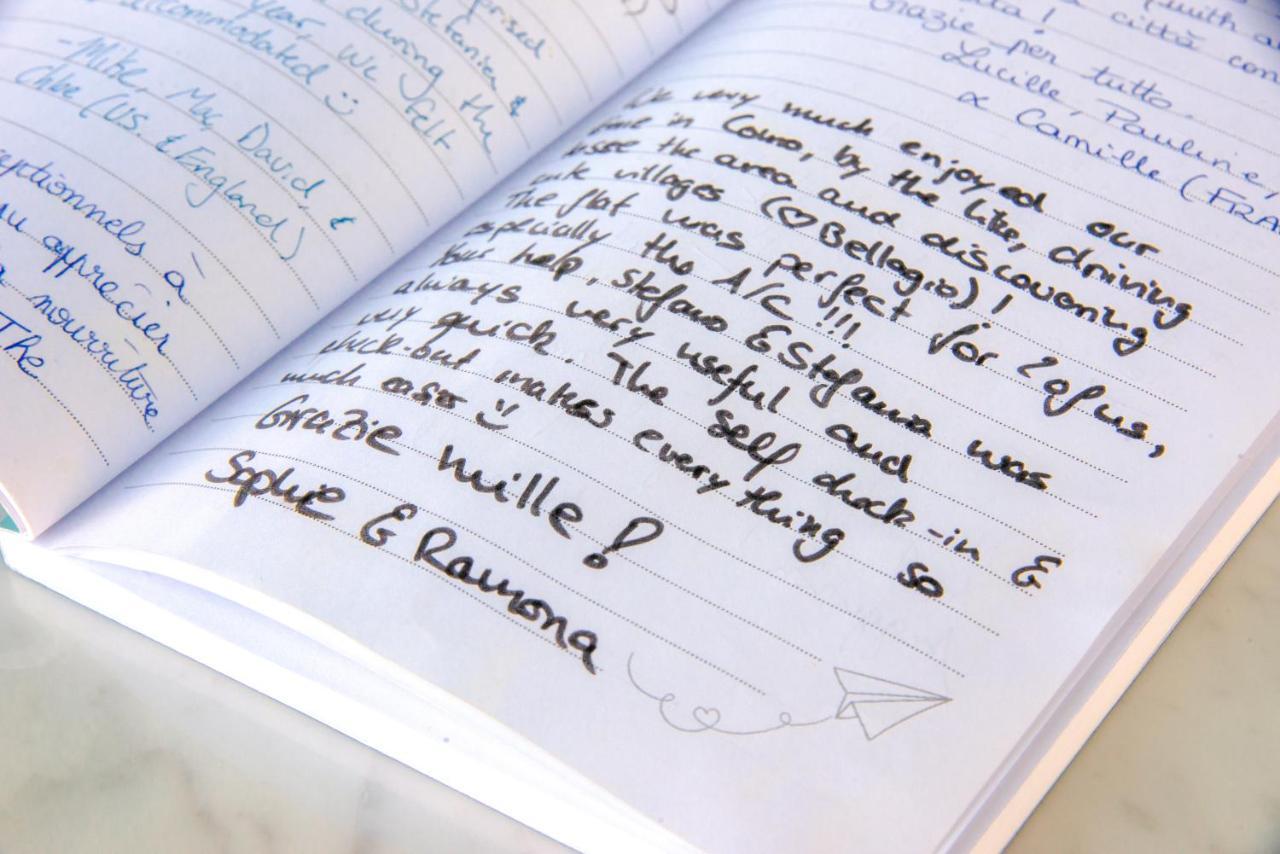 prised
Stefania &
during the
year, We felt
accommodated :)
- Mike, Mac, David, &
Chloe (US. & England)
à
au apprécier
nourriture
The
(with a
città con
Grazie per tutto.
Lucille, Pauline,
& Camille (FRA
We very much enjoyed our
time in Como, by the like, driving
the area and discovering
villages (♡Bellagio)!
The flat was perfect for 2 of us,
especially the A/C !!!
Your help, Stefano & Stefania was
always very useful and
very quick. The self check-in &
check-out makes everything so
much easier :)
Grazie mille!
Sophie & Ramona